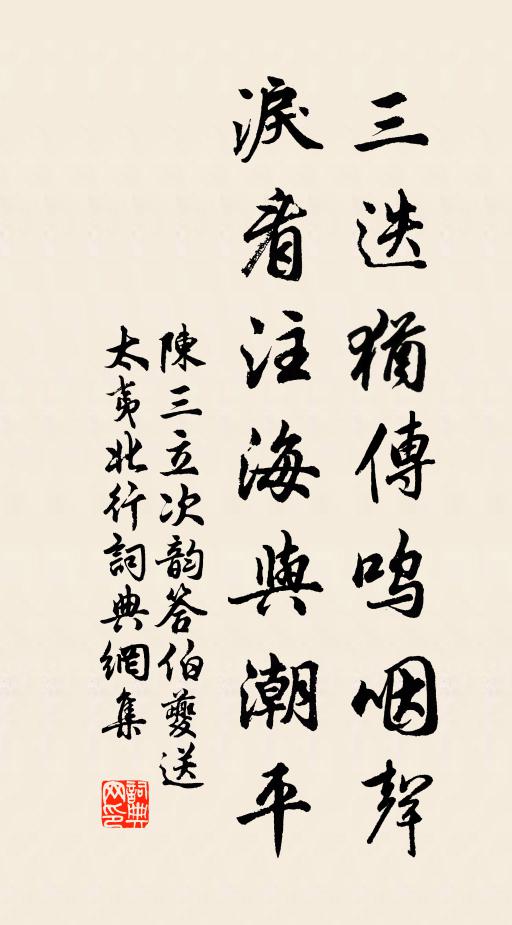 三迭猶傳嗚咽聲
淚看注海與潮平
陳三立次韵答伯夔送
太夷北行詞典網集
詞典网印